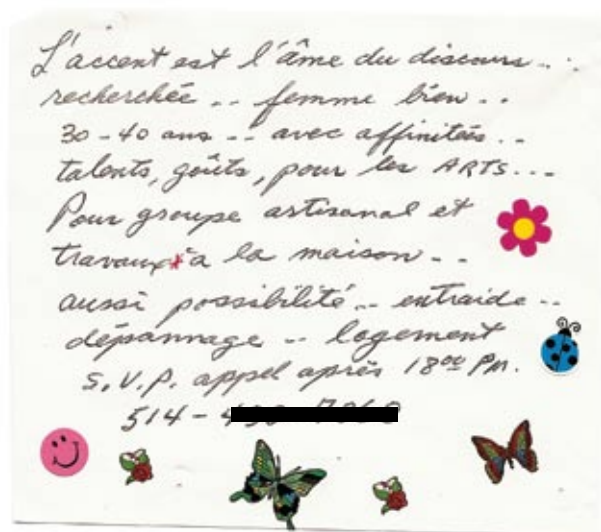 L'accent est l'âme du discours...
recherchée .. femme bien ..
30-40 ans .. avec affinitées ..
talents, goûts, pour les ARTS...
Pour groupe artisanal et
travaux à la maison ..
aussi possibilité .. entraide ..
dépannage .. logement
S.V.P. appel après 18⁰⁰ PM.
514-